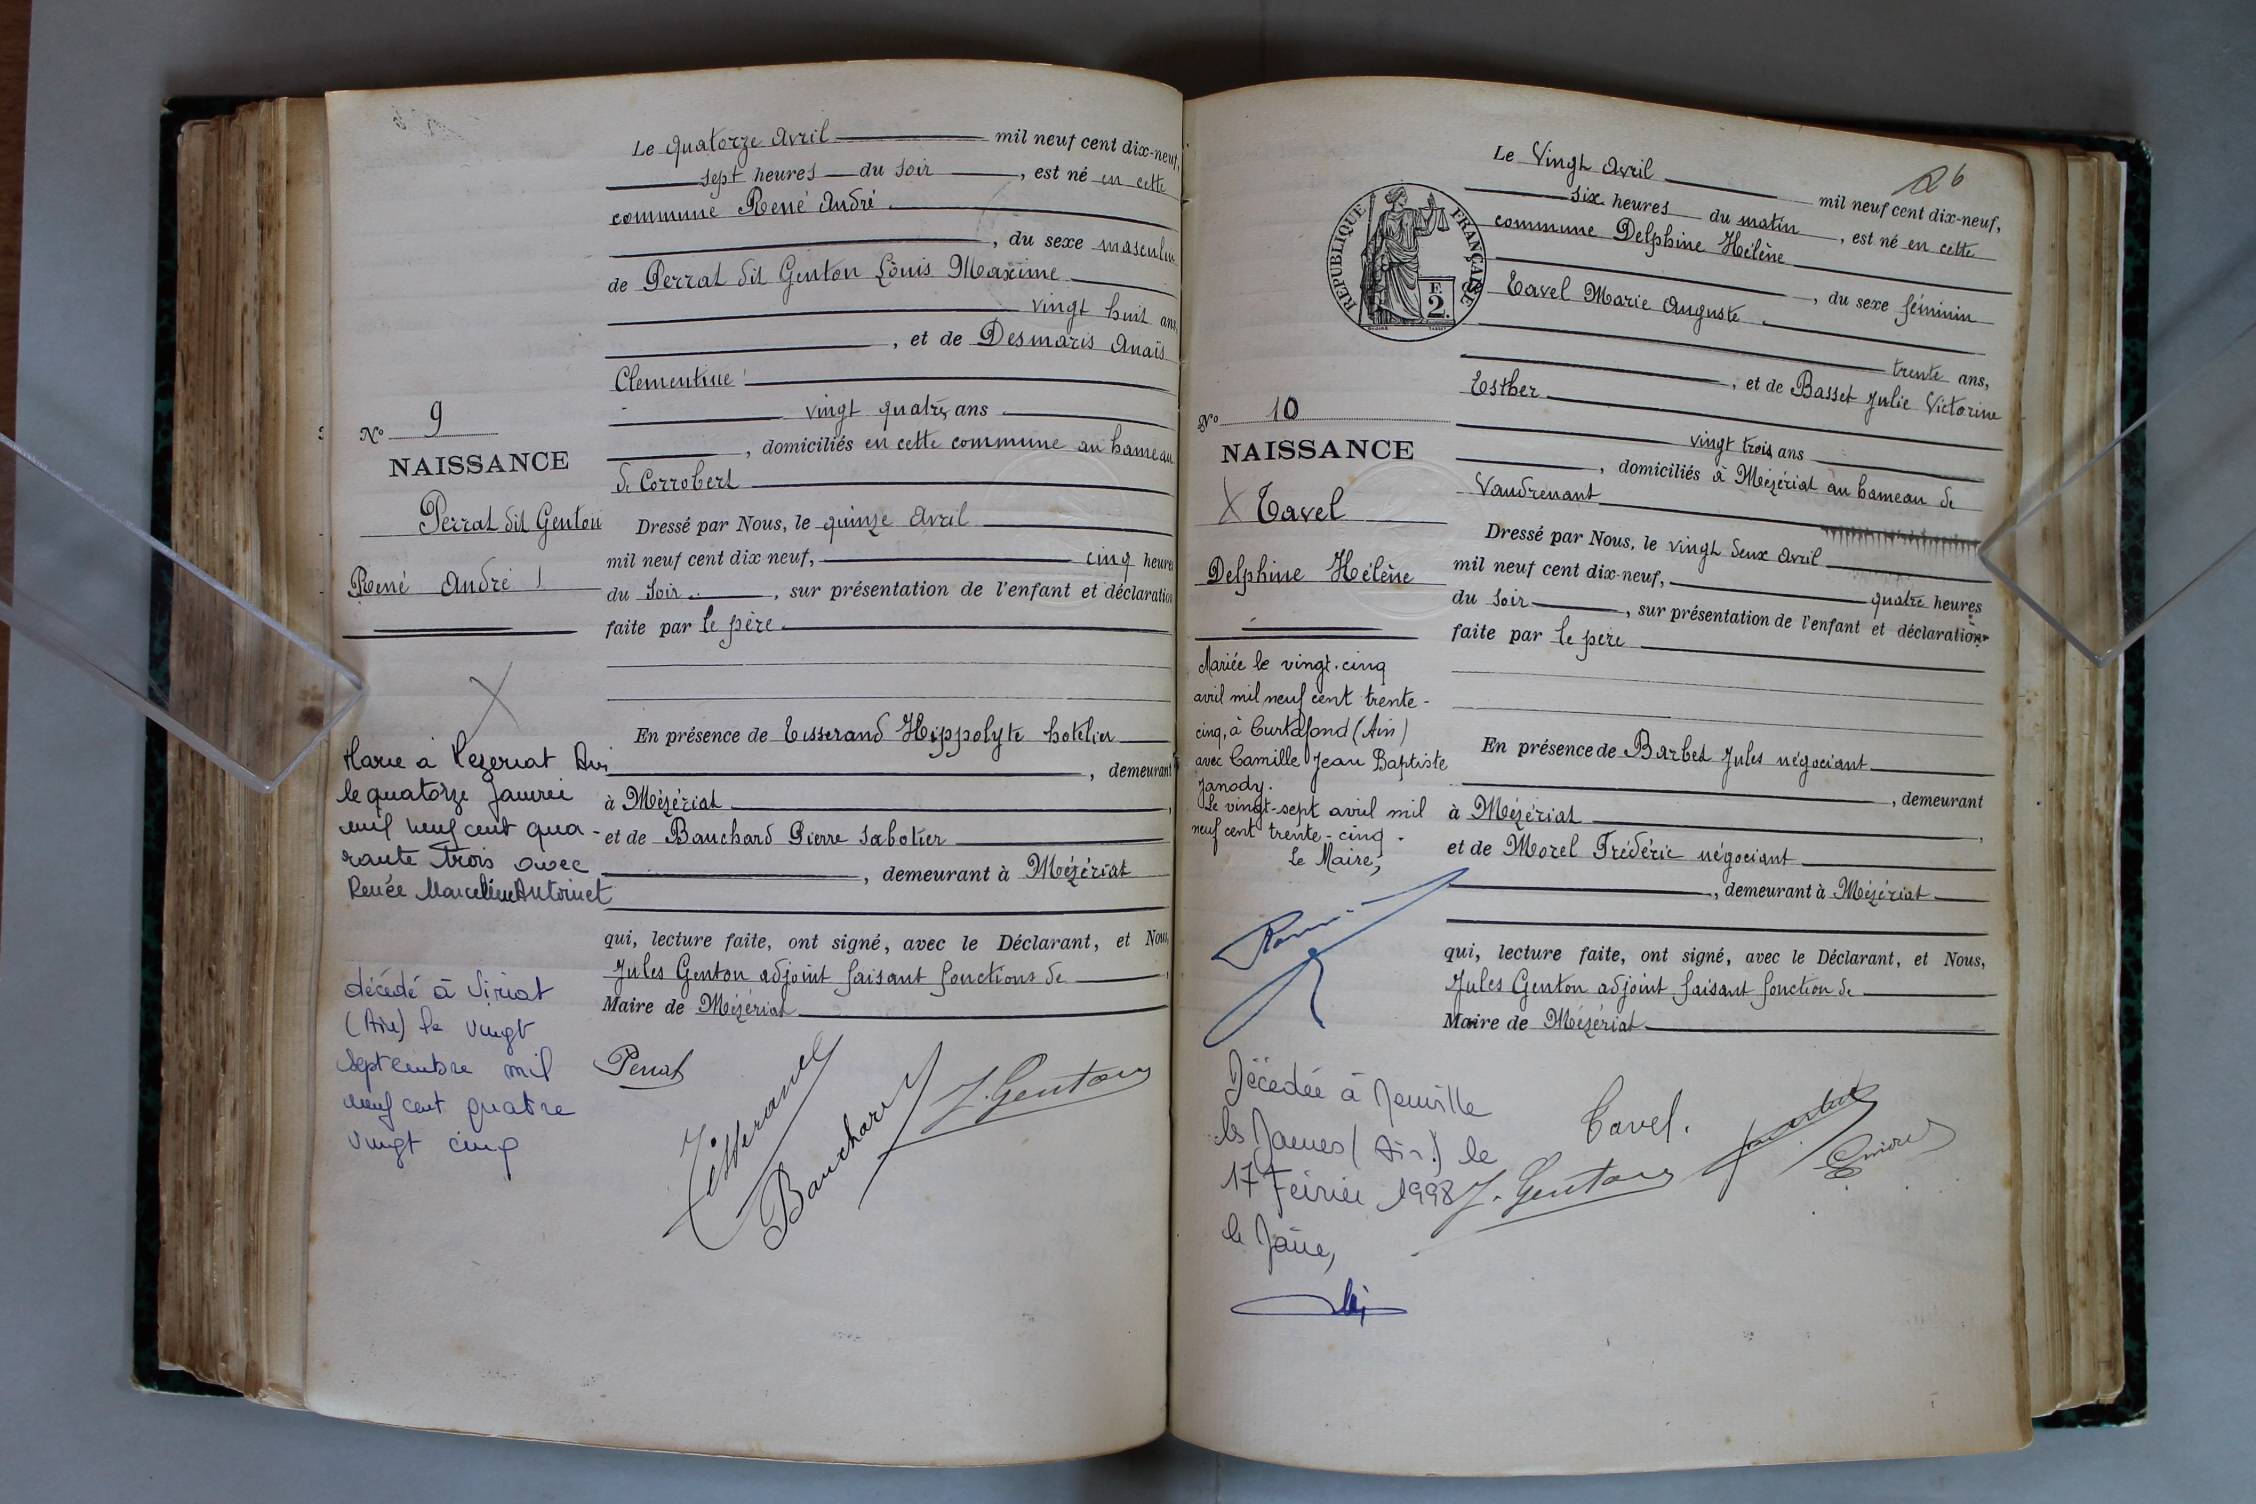 Le quatorze avril mil neuf cent dix-neuf,
sept heures du soir, est né en cette
commune René André
, du sexe masculin
de Perrat dit Genton Louis Maxime
vingt huit ans,
, et de Desmaris Anaïs
Clementine
vingt quatre ans
, domiciliés en cette commune au hameau
de Corrobert
N° 9
NAISSANCE
Perrat dit Genton
René André
Dressé par Nous, le quinze avril
mil neuf cent dix neuf, cinq heures
du soir, sur présentation de l'enfant et déclaration
faite par le père
En présence de Tisserand Hippolyte hotelier
, demeurant
à Mézériat,
et de Bauchard Pierre sabotier
, demeurant à Mézériat
qui, lecture faite, ont signé, avec le Déclarant, et Nous,
Jules Genton adjoint faisant fonctions de
Maire de Mézériat
Marié à Mezeriat Ain
le quatorze Janvier
mil neuf cent qua-
rante trois avec
Renée Marceline Antoinet
décédé à Viriat
(Ain) le vingt
septembre mil
neuf cent quatre
vingt cinq
Perrat
Tisserand
Bauchard
J. Genton
26
Le vingt avril mil neuf cent dix-neuf,
six heures du matin, est né en cette
commune Delphine Hélène
, du sexe féminin
Tavel Marie Auguste
trente ans,
, et de Basset Julie Victorine
Esther
vingt trois ans
, domiciliés à Mézériat au hameau de
Vaudrenant
RÉPUBLIQUE FRANÇAISE
F.
2.
N° 10
NAISSANCE
Tavel
Delphine Hélène
Dressé par Nous, le vingt deux avril
mil neuf cent dix-neuf, quatre heures
du soir, sur présentation de l'enfant et déclaration
faite par le père
En présence de Barbet Jules négociant
, demeurant
à Mézériat,
et de Morel Frédéric négociant
, demeurant à Mézériat
qui, lecture faite, ont signé, avec le Déclarant, et Nous,
Jules Genton adjoint faisant fonction de
Maire de Mézériat
Mariée le vingt-cinq
avril mil neuf cent trente-
cinq, à Curtafond (Ain)
avec Camille Jean Baptiste
Janody.
Le vingt-sept avril mil
neuf cent trente-cinq.
Le Maire,
Décédée à Neuville
les Dames (Ain) le
17 Février 1998
le Maire,
Tavel.
J. Genton